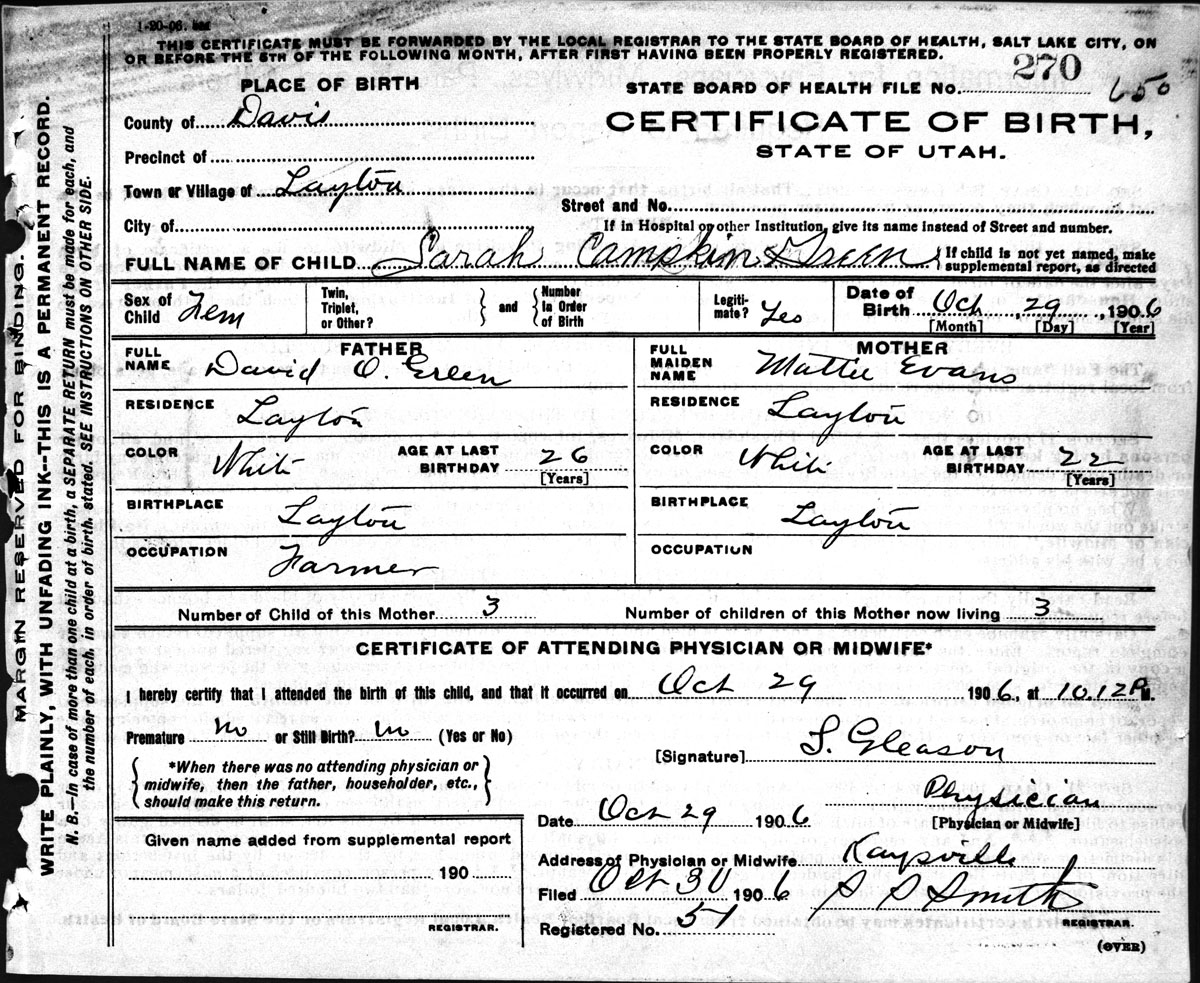 1-20-06.
THIS CERTIFICATE MUST BE FORWARDED BY THE LOCAL REGISTRAR TO THE STATE BOARD OF HEALTH, SALT LAKE CITY, ON
OR BEFORE THE 5TH OF THE FOLLOWING MONTH, AFTER FIRST HAVING BEEN PROPERLY REGISTERED.
270
650
PLACE OF BIRTH
STATE BOARD OF HEALTH FILE No.
County of Davis
CERTIFICATE OF BIRTH,
STATE OF UTAH.
Precinct of
Town or Village of Layton
Street and No.
City of
If in Hospital or other Institution, give its name instead of Street and number.
FULL NAME OF CHILD Sarah Camskin Green { If child is not yet named, make supplemental report, as directed
Sex of Child Fem Twin, Triplet, or Other? } and { Number in Order of Birth Legiti- mate? Yes Date of Birth Oct, 29, 1906
[Month] [Day] [Year]
FATHER
FULL NAME David O. Green
RESIDENCE Layton
COLOR White AGE AT LAST BIRTHDAY 26
[Years]
BIRTHPLACE Layton
OCCUPATION Farmer
MOTHER
FULL MAIDEN NAME Mattie Evans
RESIDENCE Layton
COLOR White AGE AT LAST BIRTHDAY 22
[Years]
BIRTHPLACE Layton
OCCUPATION
Number of Child of this Mother 3 Number of children of this Mother now living 3
CERTIFICATE OF ATTENDING PHYSICIAN OR MIDWIFE*
I hereby certify that I attended the birth of this child, and that it occurred on Oct 29 1906, at 10.12 P.m.
Premature no or Still Birth? no (Yes or No)
[Signature] S. Gleason
{ *When there was no attending physician or
midwife, then the father, householder, etc.,
should make this return. }
Physician
[Physician or Midwife]
Date Oct 29 1906
Given name added from supplemental report
190
REGISTRAR.
Address of Physician or Midwife. Kaysville
Filed Oct 30 1906 Smith
REGISTRAR.
Registered No. 51
(OVER)
MARGIN RESERVED FOR BINDING.
WRITE PLAINLY, WITH UNFADING INK--THIS IS A PERMANENT RECORD.
N. B.--In case of more than one child at a birth, a SEPARATE RETURN must be made for each, and
the number of each, in order of birth, stated. SEE INSTRUCTIONS ON OTHER SIDE.